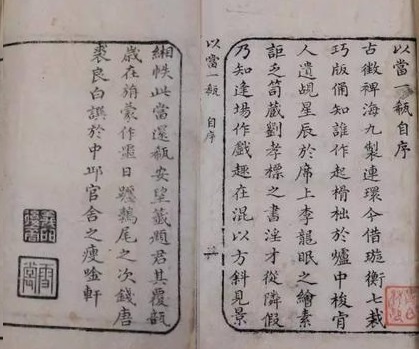 以當一瓻自序
古徵裨海九製連環今借璇衡七裁
巧版俑知誰作起榾柮於爐中梭宵
人遺覘星辰於席上李龍眠之繪素
詎乏笥藏劉孝標之書淫才從隣假
乃知逢場作戲趣在混以方斜見景
以當一瓻 自序
緗帙此當還瓻安望籤題君其覆瓿
歲在旃蒙作噩日躔鶉尾之次錢唐
裘良白譔於中邱官舍之瘦唫軒